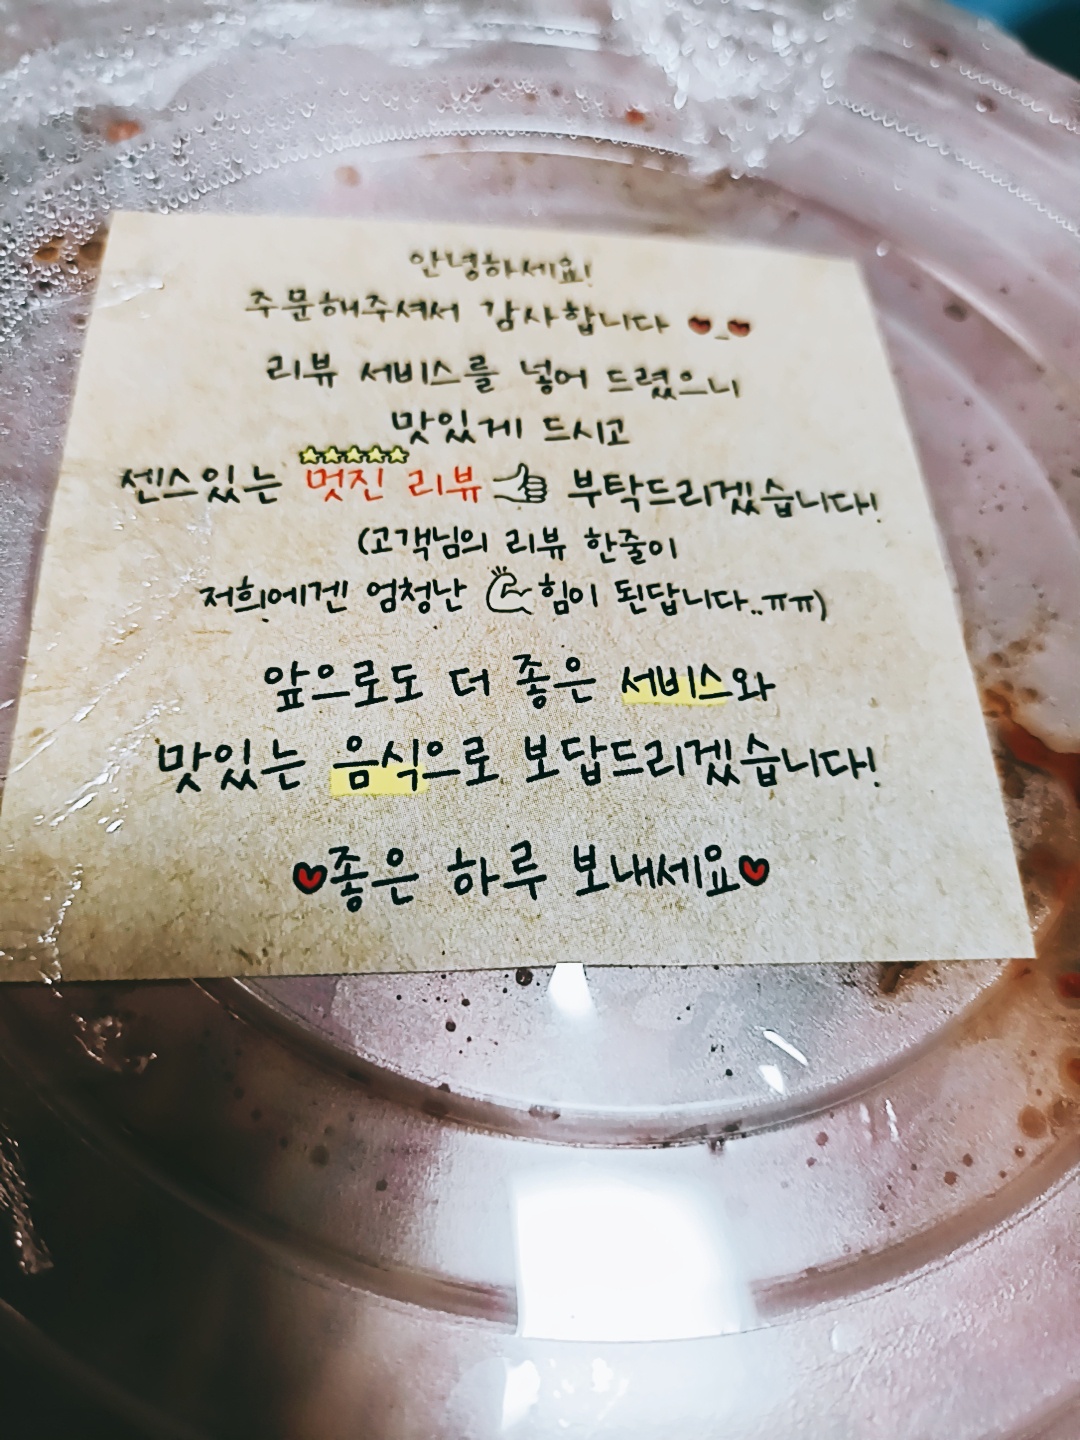 안녕하세요!
주문해주셔서 감사합니다 ♥_♥
리뷰 서비스를 넣어 드렸으니
맛있게 드시고
★★★★★
센스있는 멋진 리뷰 👍 부탁드리겠습니다!
(고객님의 리뷰 한줄이
저희에겐 엄청난 💪힘이 된답니다..ㅠㅠ)
앞으로도 더 좋은 서비스와
맛있는 음식으로 보답드리겠습니다!
♥좋은 하루 보내세요♥